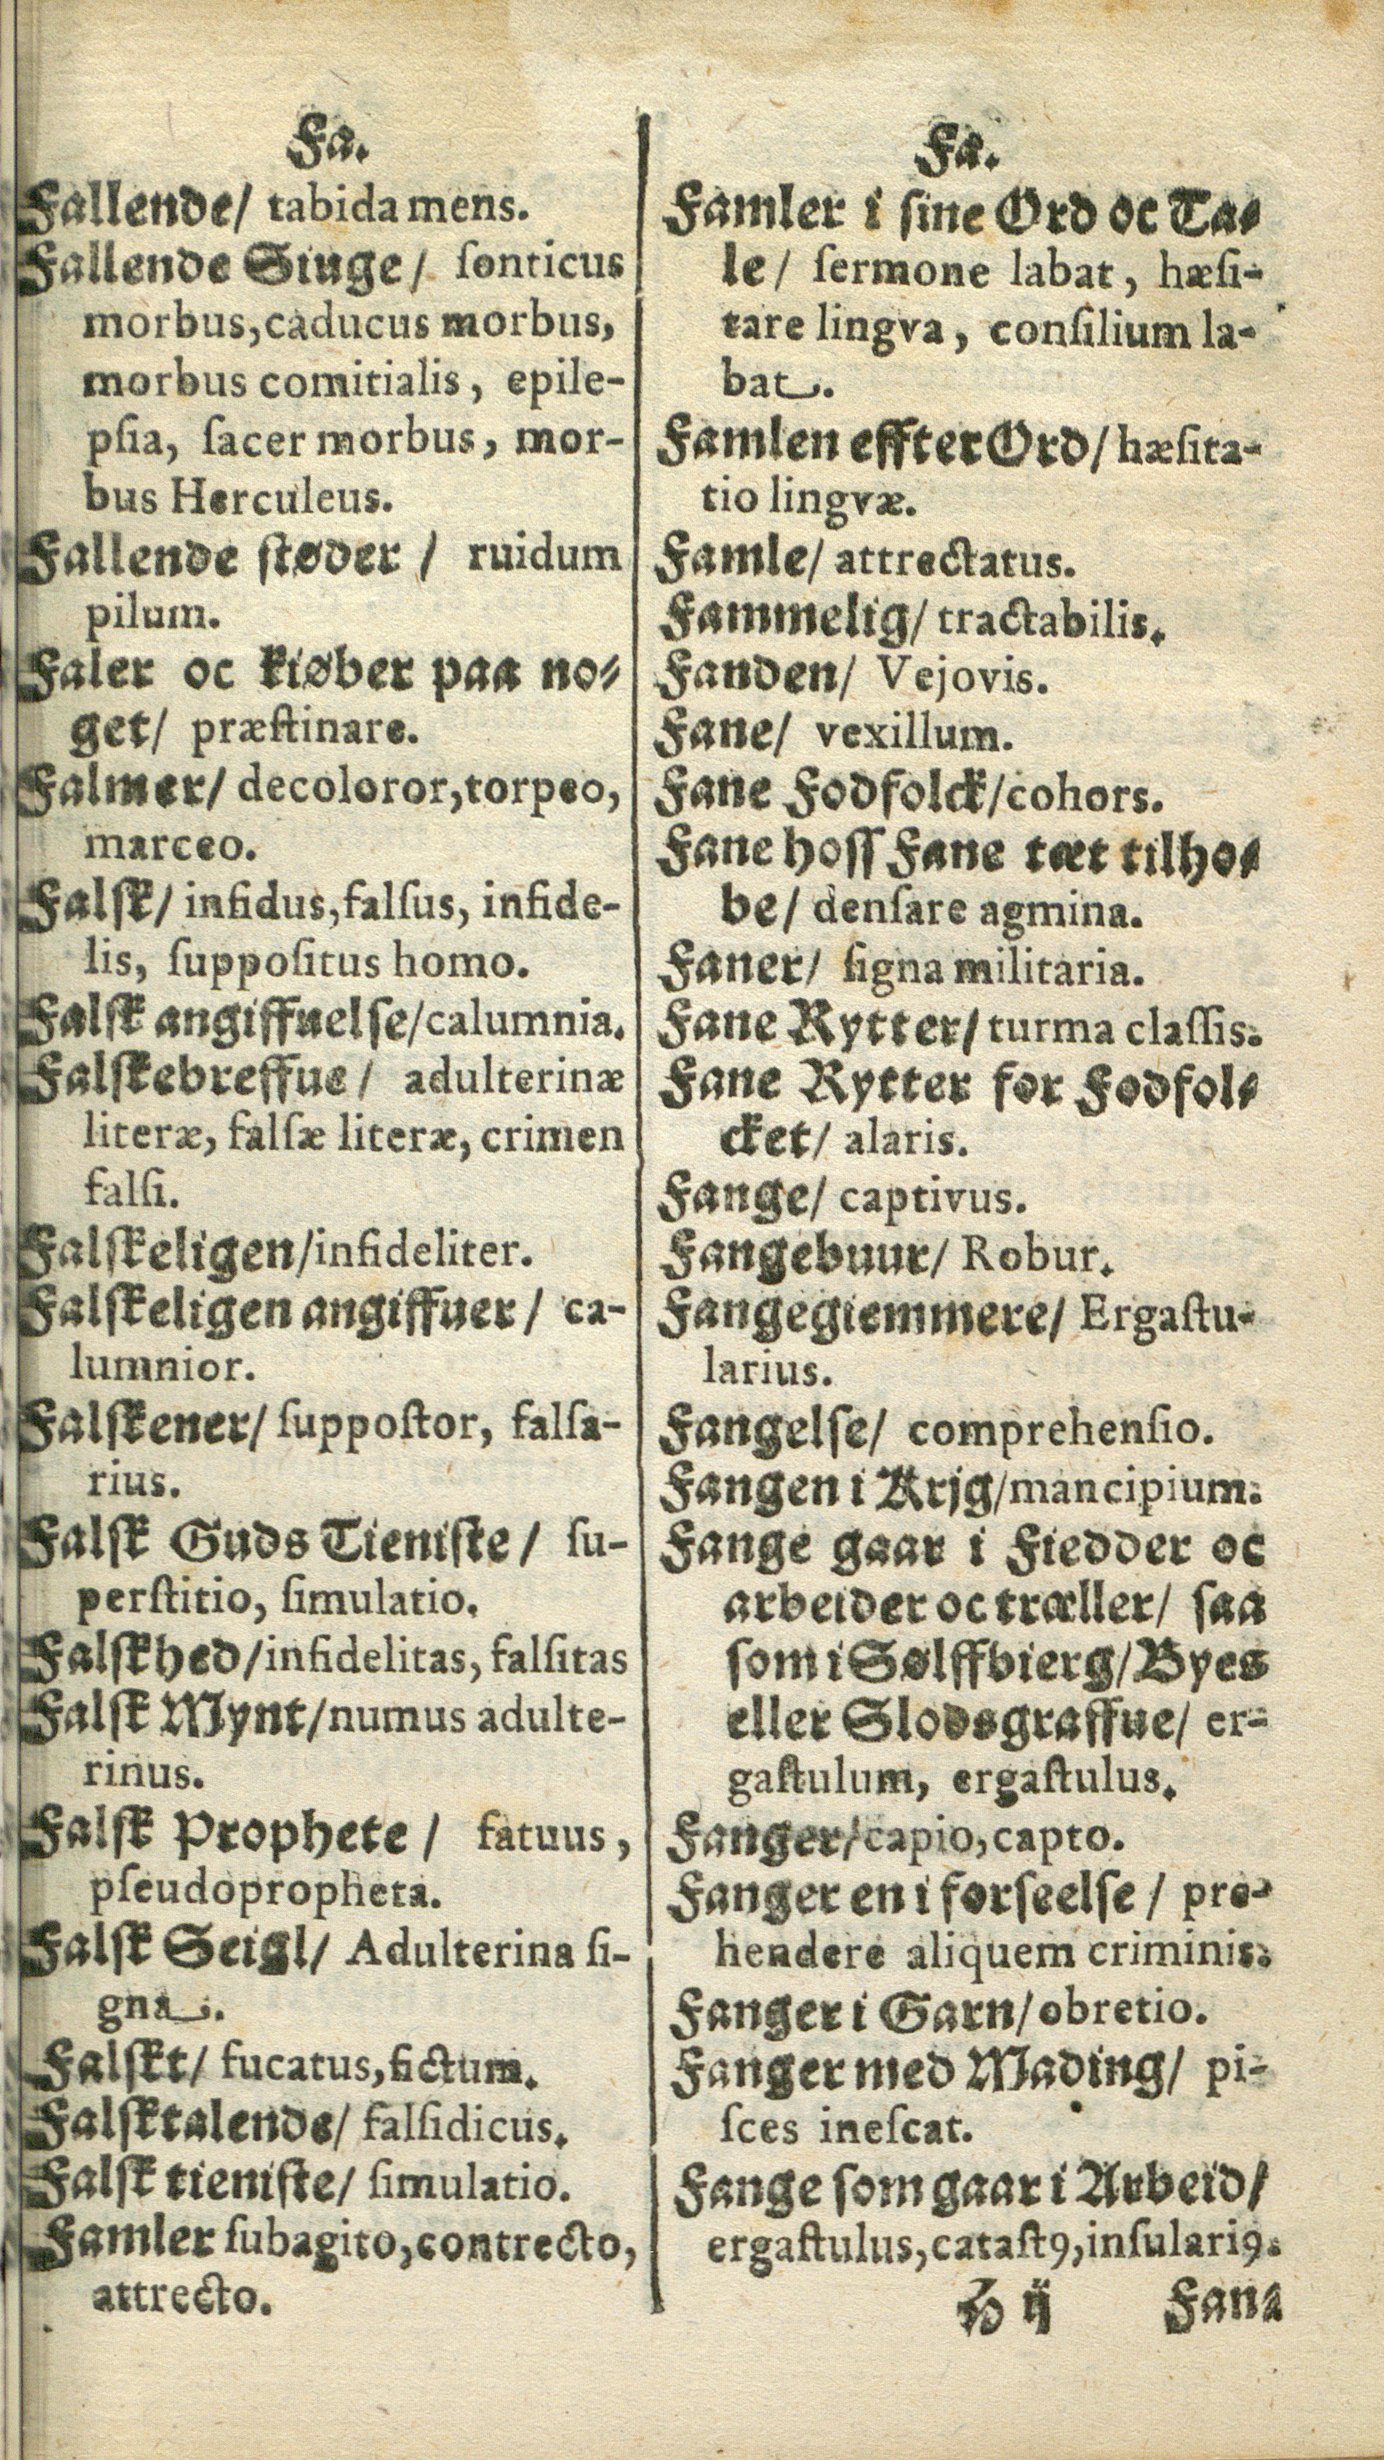 Fa.
Fallende/ tabida mens.
Fallende Siuge/ ſonticus
morbus, caducus morbus,
morbus comitialis, epile-
pſia, ſacer morbus, mor-
bus Herculeus.
Fallende ſtøder / ruidum
pilum.
Faler oc kiøber paa no-
get/ præſtinare.
Falmer/ decoloror, torpeo,
marceo.
Falſk/ infidus, falſus, infide-
lis, ſuppoſitus homo.
Falſk angiffuelſe/ calumnia.
Falſkebreffue/ adulterinæ
literæ, falſæ literæ, crimen
falſi.
Falſkeligen/ infideliter.
Falſkeligen angiffuer/ ca-
lumnior.
Falſkener/ ſuppoſtor, falſa-
rius.
Falſk Guds Tieniſte/ ſu-
perſtitio, ſimulatio.
Falſkhed/ infidelitas, falſitas
Falſk Mynt/ numus adulte-
rinus.
Falſk Prophete/ fatuus,
pſeudopropheta.
Falſk Seigl/ Adulterina ſi-
gna.
Falſkt/ fucatus, fictum.
Falſktalende/ falſidicus.
Falſk tieniſte/ ſimulatio.
Famler ſubagito, contrecto,
attrecto.
Fa.
Famler i ſine Ord oc Ta-
le/ ſermone labat, hæſi-
tare lingva, conſilium la-
bat.
Famlen effter Ord/ hæſita-
tio lingvæ.
Famle/ attrectatus.
Fammelig/ tractabilis.
Fanden/ Vejovis.
Fane/ vexillum.
Fane Fodfolck/ cohors.
Fane hoſſ Fane tæt tilho-
be/ denſare agmina.
Faner/ ſigna militaria.
Fane Rytter/ turma claſſis.
Fane Rytter for Fodfol-
cket/ alaris.
Fange/ captivus.
Fangebuur/ Robur.
Fangegiemmere/ Ergaſtu-
larius.
Fangelſe/ comprehenſio.
Fangen i Krjg/ mancipium.
Fange gaar i Fiedder oc
arbeider oc træller/ ſaa
ſom i Sølffbierg/ Byes
eller Slodsgraffue/ er-
gaſtulum, ergaſtulus.
Fanger/ capio, capto.
Fanger en i forſeelſe/ pre-
hendere aliquem criminis.
Fanger i Garn/ obretio.
Fanger med Mading/ pi-
ſces ineſcat.
Fange ſom gaar i Arbeid/
ergaſtulus, cataſtꝰ, inſulariꝰ.
H ij Fan-